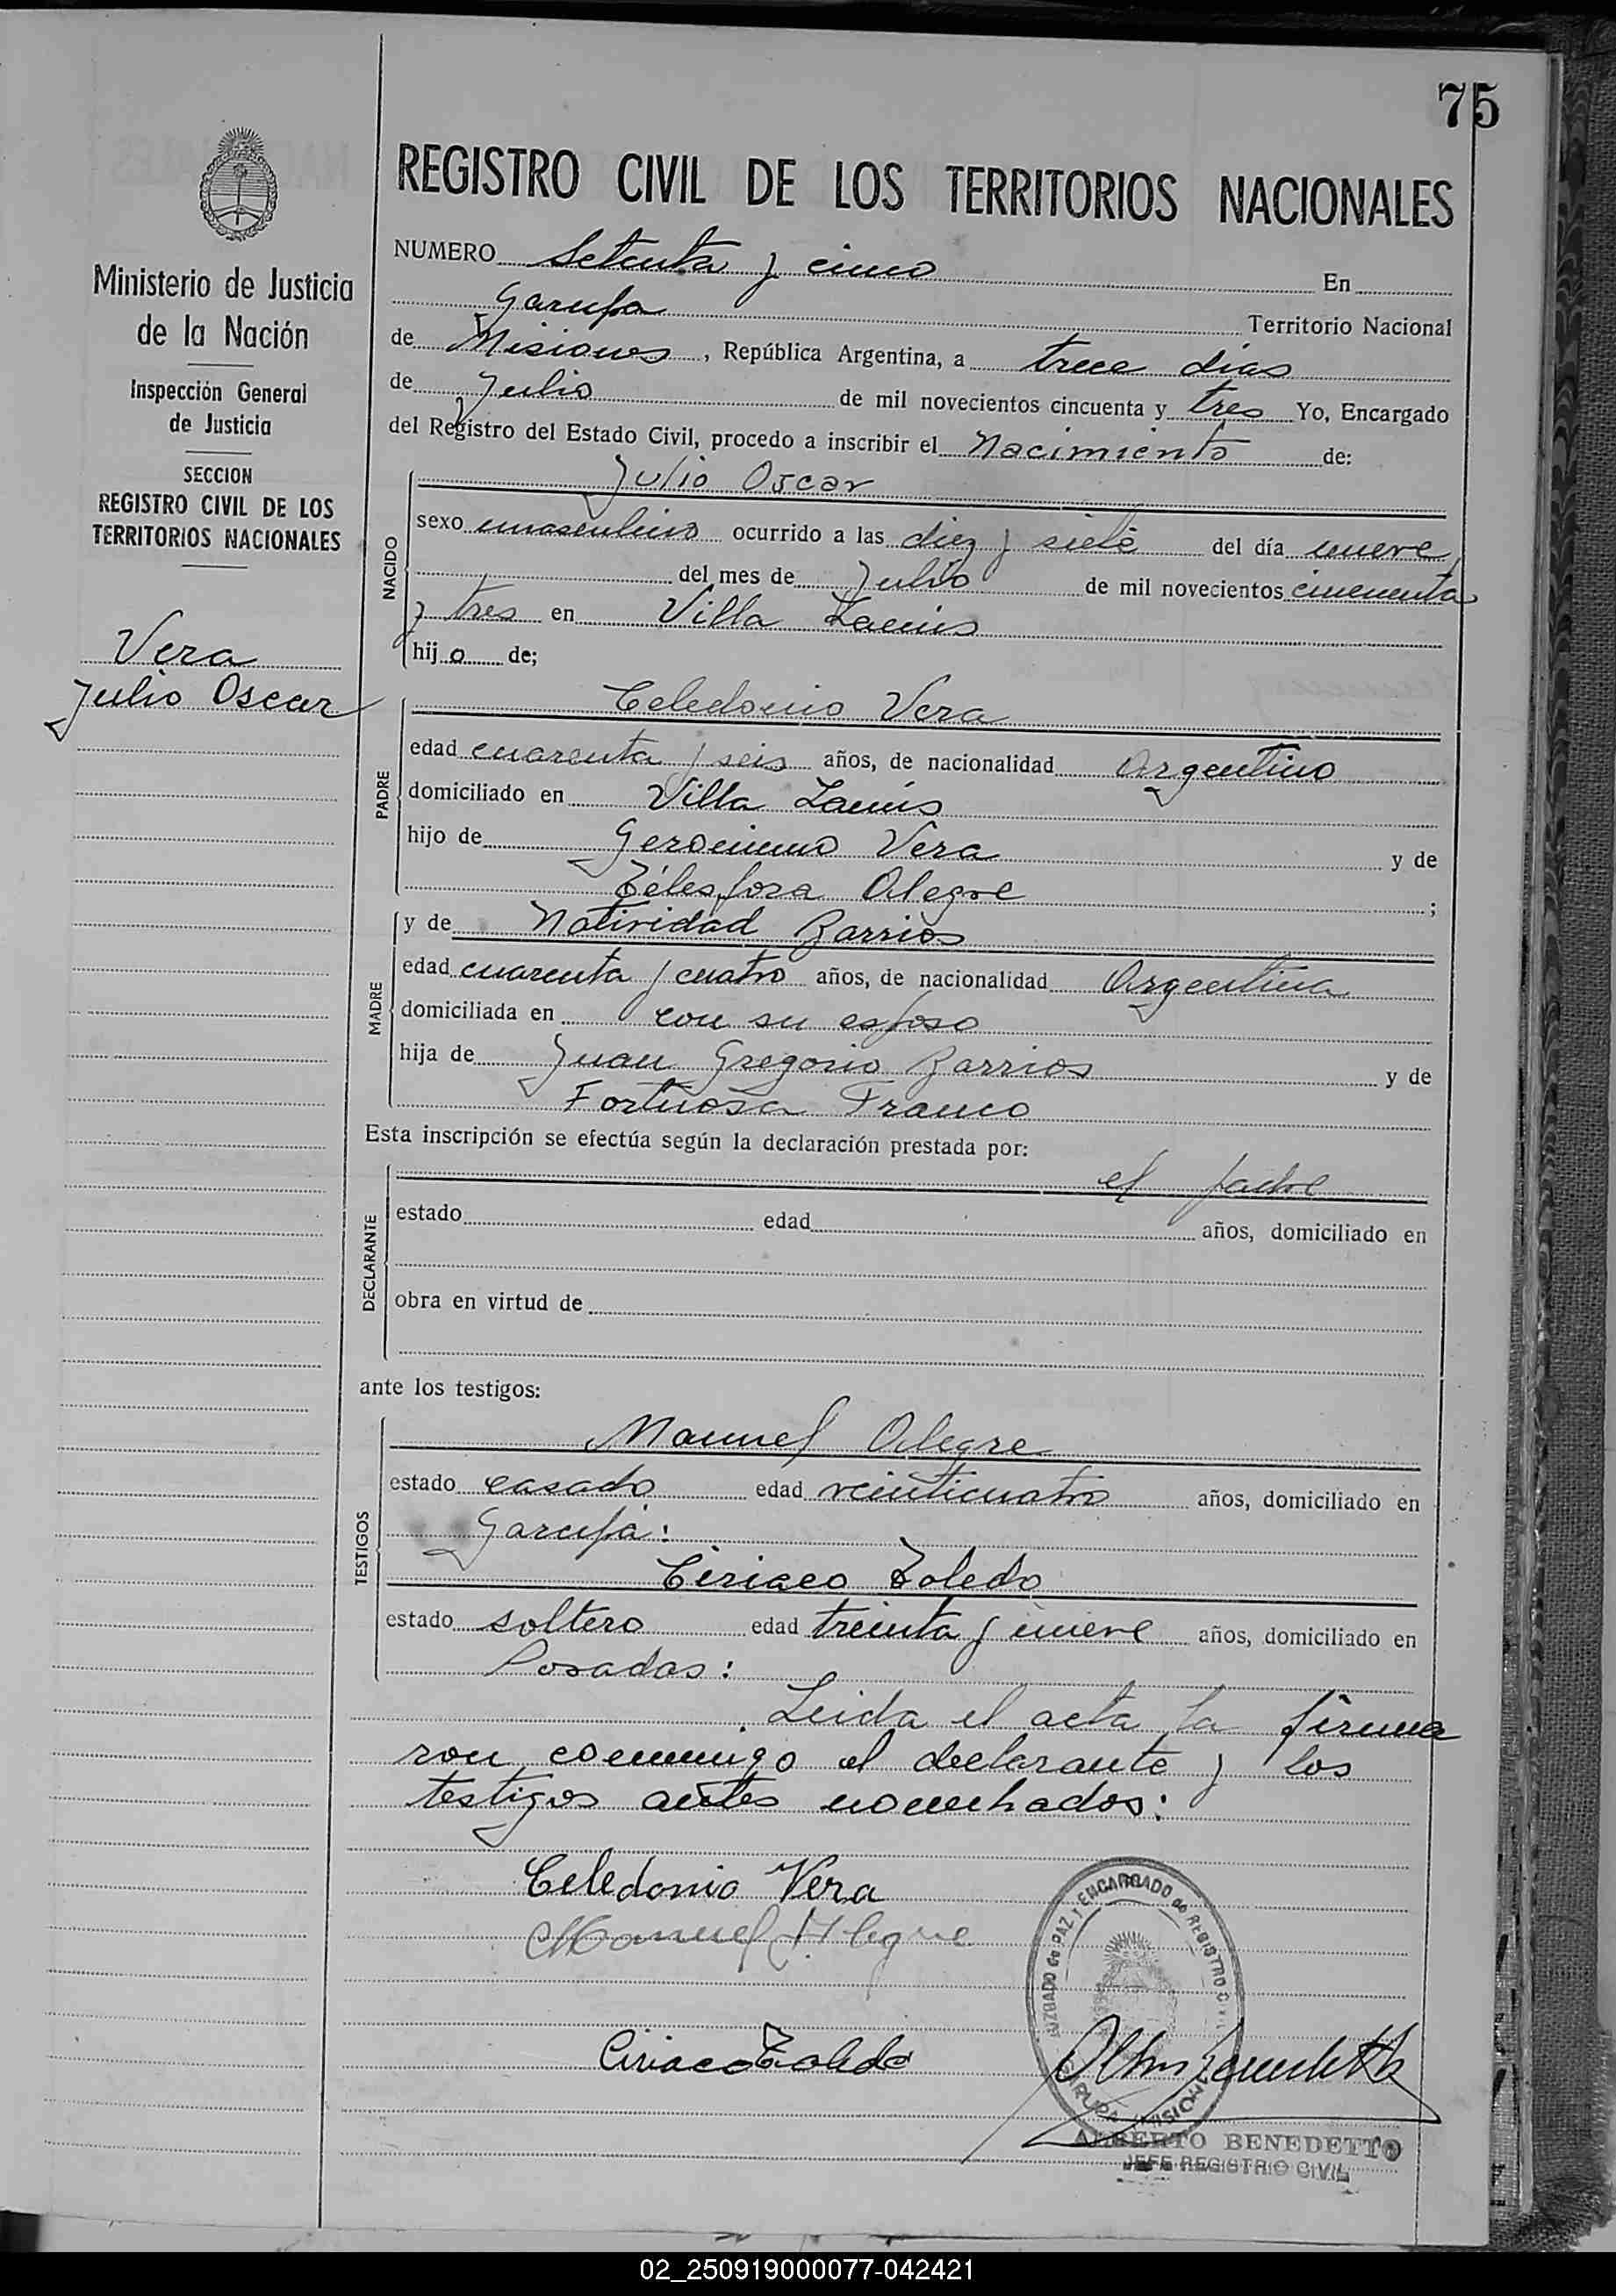 75
REGISTRO CIVIL DE LOS TERRITORIOS NACIONALES
Ministerio de Justicia
de la Nación
Inspección General
de Justicia
SECCION
REGISTRO CIVIL DE LOS
TERRITORIOS NACIONALES
Vera
Julio Oscar
NUMERO Setenta y cinco En
Garupa Territorio Nacional
de Misiones, República Argentina, a trece días
de Julio de mil novecientos cincuenta y tres Yo, Encargado
del Registro del Estado Civil, procedo a inscribir el Nacimiento de:
NACIDO
Julio Oscar
sexo masculino ocurrido a las diez y siete del día nueve
del mes de Julio de mil novecientos cincuenta
y tres en Villa Lanús
hijo de;
PADRE
Celedonio Vera
edad cuarenta y seis años, de nacionalidad Argentino
domiciliado en Villa Lanús
hijo de Geronimo Vera y de
Télesfora Alegre ;
MADRE
y de Natividad Barrios
edad cuarenta y cuatro años, de nacionalidad Argentina
domiciliada en con su esposo
hija de Juan Gregorio Barrios y de
Fortuosa Franco
Esta inscripción se efectúa según la declaración prestada por:
DECLARANTE
el padre
estado edad años, domiciliado en
obra en virtud de
ante los testigos:
TESTIGOS
Manuel Alegre
estado casado edad veinticuatro años, domiciliado en
Garupá:
Ciriaco Toledo
estado soltero edad treinta y nueve años, domiciliado en
Posadas:
Leida el acta la firma
ron conmigo el declarante y los
testigos antes nombrados:
Celedonio Vera
Manuel Alegre
Ciriaco Toledo
JUZGADO de PAZ y ENCARGADO de REGISTRO
GARUPA MISIONES
ALBERTO BENEDETTO
JEFE REGISTRO CIVIL
02_250919000077-042421